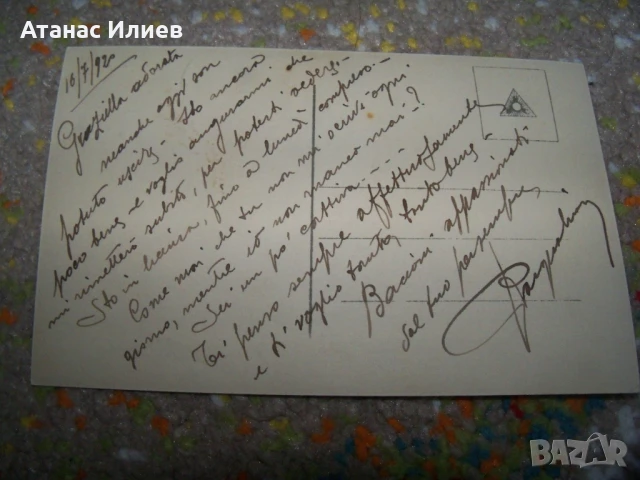 Атанас Илиев
16/7/920
Graziella adorata
neanche oggi son
potuto uscire - sto ancora
poco bene - e voglio augurarmi che
mi rimetterò subito, per poterti vedere -
Sto in licenza, fino a lunedì compreso -
Come mai che tu non mi scrivi ogni
giorno, mentre io non manco mai?
Sei un po' cattiva ...
Ti penso sempre affettuosamente
e ti voglio tanto, tanto bene -
Bacioni appassionati
dal tuo per sempre
Pasqualino
BAZAR